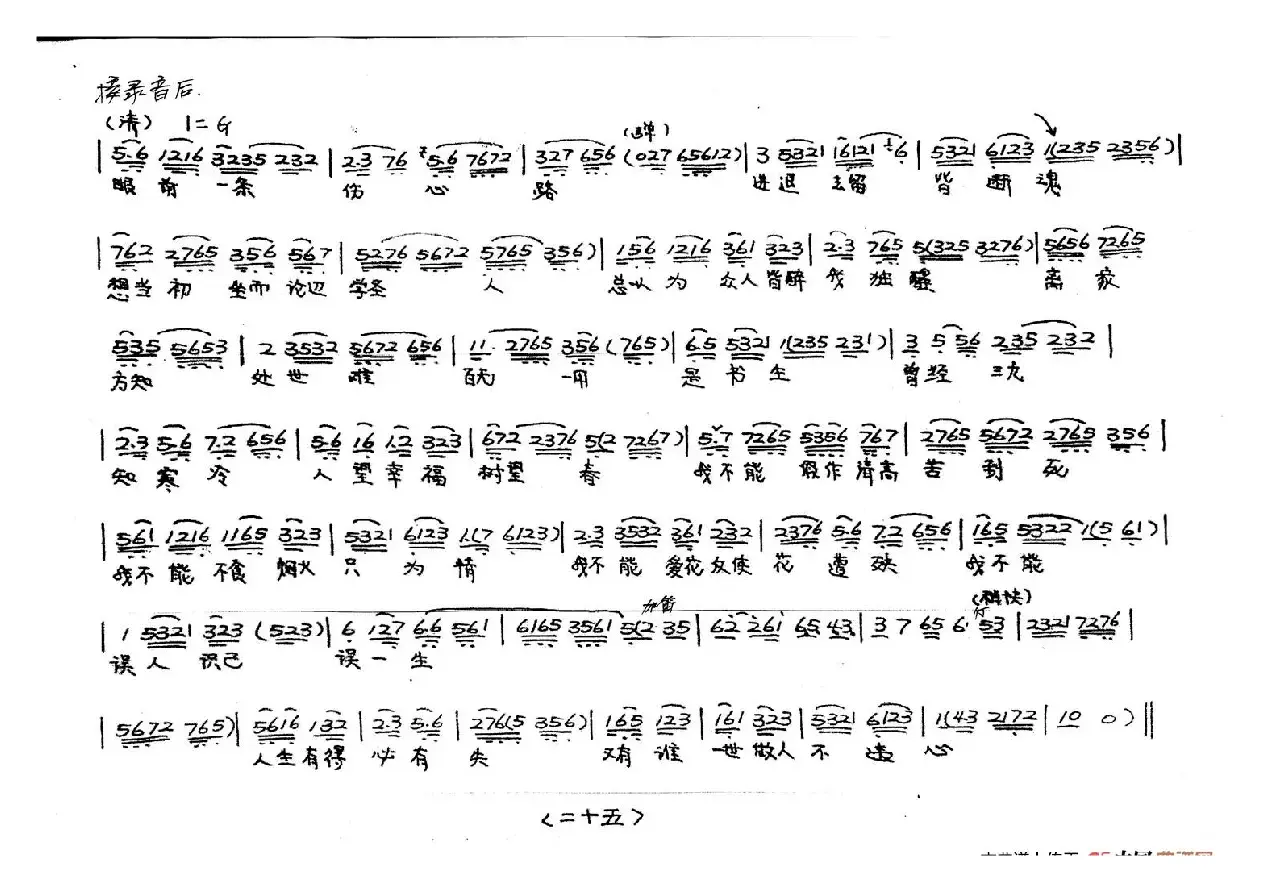 接录音后
(清) 1=G
(速单)
| 5·6 1216 3235 232 | 2·3 76 5·6 7672 | 327 656 (027 65612) | 3 5321 16121 6 | 5321 6123 1(235 2356) |
眼前一条 伤心 路 进退去留 皆断魂
| 762 2765 356 567 | 5276 5672 5765 356) | 156 1216 361 323 | 2·3 765 5(325 3276) | 5656 7265
想当初 坐而论边学圣 人 总以为众人皆醉我独醒 离家
535 5653 | 2 3532 5672 656 | 11 2765 356 (765) | 65 5321 1(235 231) | 3 5 56 235 232 |
方知 处世难 百无一用 是书生 曾经三九
| 2·3 5·6 7·2 656 | 5·6 16 1·2 323 | 672 2376 5(2 7267) | 5·7 7265 5356 767 | 2765 5672 2765 356 |
知寒冷 人望幸福树望春 我不能假作清高苦到死
561 1216 1165 323 | 5321 6123 1(7 6123) | 2·3 3532 361 232 | 2376 5·6 72 656 | 165 5322 1(5 61) |
我不能不食烟火只为情 我不能爱花反使花遭殃 我不能
加笛 (稍快)
| 1 5321 323 (523) | 6 127 6·6 561 | 6165 3561 5(2 35 | 62 261 65 43 | 3 7 65 6 53 | 2321 7276 |
误人误己 误一生
| 5672 765) | 5616 132 | 2·3 5·6 | 276(5 356) | 165 123 | 161 323 | 5321 6123 | 1(43 2172 | 10 0) ||
人生有得必有失 又有谁一世做人不违心
<二十五>